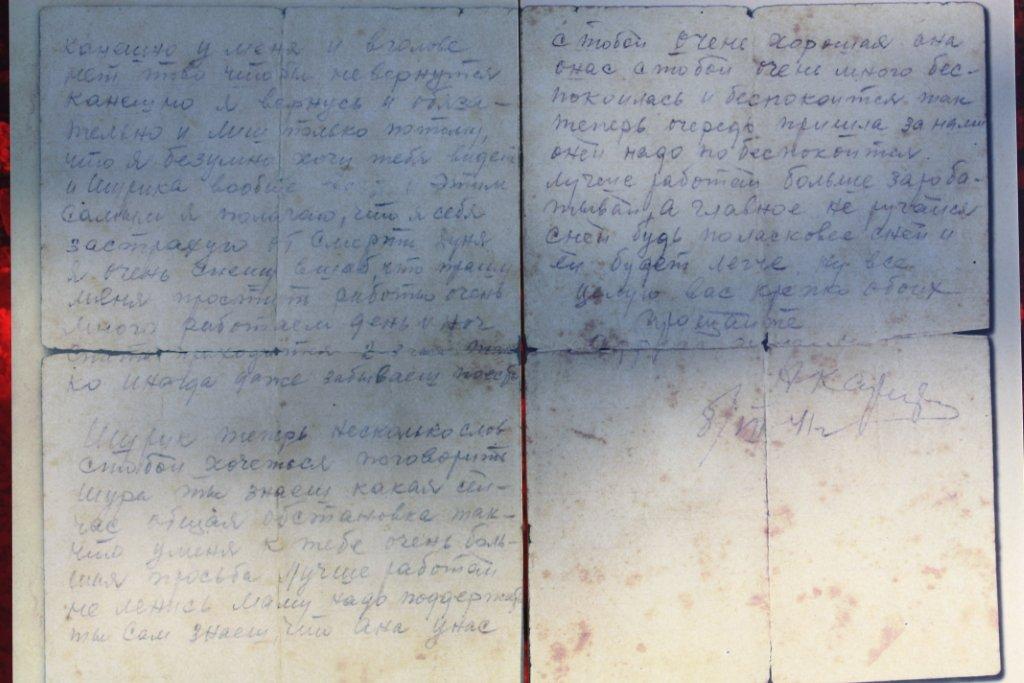 канешно у меня и в голове
нет тово чтобы не вернутся
канешно я вернусь и обяза-
тельно и лиш только потому,
что я безумно хочу тебя видеть
и Шурика вообще этим
самым я полагаю, что я себя
застрахую от смерти
я очень спешу что
меня простить работы очень
много работаем день и ноч
спать 2-3 час
ко иногда даже забываеш поесть
Шурик теперь несколько слов
стобой хочеться поговорить
Шура ты знаеш какая сей-
час общая обстановка так-
что уменя к тебе очень боль-
шая просьба лучше работай
не ленись маму надо поддержать
ты сам знаеш что ана унас
с тобой очень хорошая она
онас стобой очень много бес-
покоилась и беспокоится так
теперь очередь пришла за нами
оней надо побеспокоится
лучше работай больше зараба-
тывай, а главное не ругайся
сней будь поласковее сней и
ей будет легче ну все
целую вас крепко обоих
прощайте
8/VII 41г